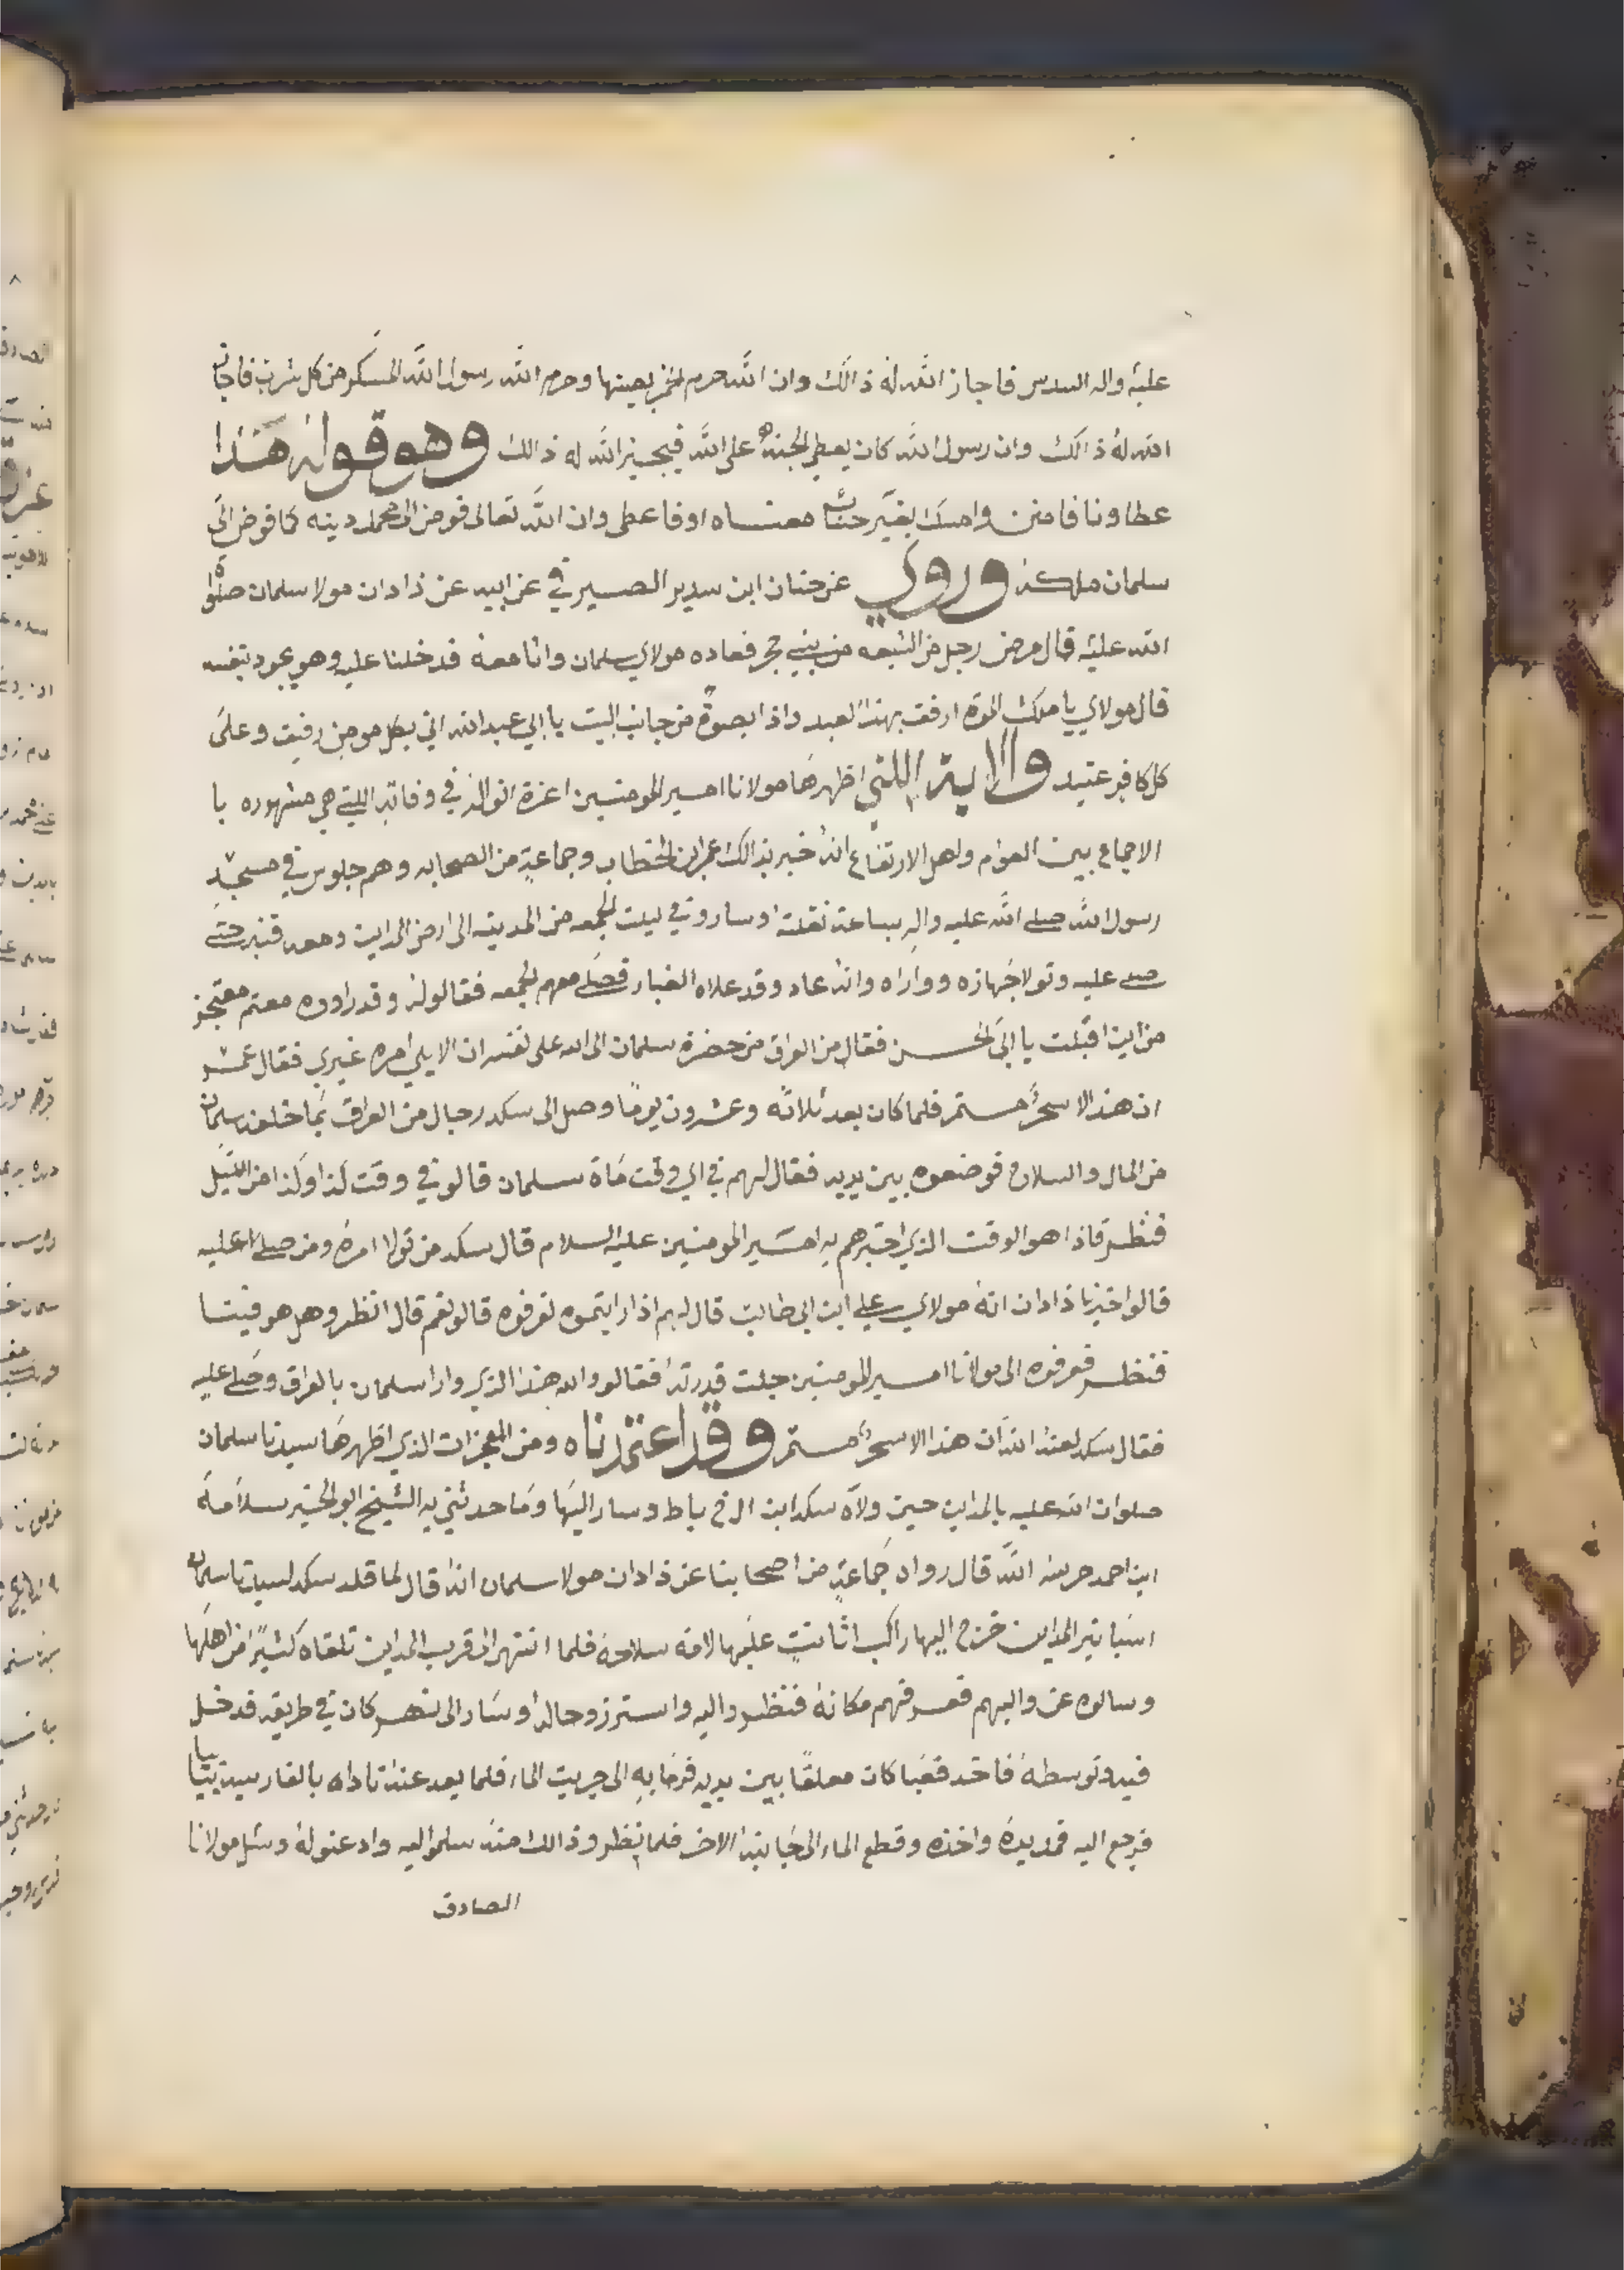 عليه واله السدس فاجاز الله له ذالك وان الله حرم الخمر بعينها وحرم الله رسول الله المسكر من كل شرب فاجاز
الله له ذالك وان رسول الله كان يعطي الجنة على الله فيجيز الله له ذالك وهو قوله هذا
عطاونا فامنن وامسك بغير حساب معناه اوفاعطي وان الله تعالى فوض الى محمد دينه كما فوض الى
سلمان ملكه وروي عن حنان ابن سدير الصيرفي عن ابيه عن ذادان مولا سلمان صلواة
الله عليه قال مرض رجل من الشيعه من بني حجر فعاده مولاي سلمان وانا معه فدخلنا عليه وهو يجود بنفسه
قال مولاي يا ملك الموة ارفق بهذا العبد واذا بصوة من جانب البيت يا ابي عبدالله اني بكل مومن رفيق وعلى
كل كافر عتيد والاية اللتي اظهرها مولانا امير المومنين اعزة انواله في وفاته اللتي هي مشهوره با
الاجماع بين العوام واهل الارتفاع انه خبر بذالك عمر ابن الخطاب وجماعة من الصحابه وهم جلوس في مسجد
رسول الله صلى الله عليه واله بساعة نقلته وساروفي ليلت الجمعه من المدينه الى ارض المداين ومعه قنبر حتى
صلى عليه وتولا جهازه وواراه وانه عاد وقد علاه الغبار فصلى معهم الجمعه فقالوله وقد راووه معتم معتجز
من اين اقبلت يا ابي الحسن فقال من العراق من حضرة سلمان الى الله على نفسه ان الا يلي امره غيري فقال عمر
ان هذا الا سحر مستمر فلما كان بعد ثلاثه وعشرون يوما وصل الى سكد رجال من العراق بما خلفه سلمان
من المال والسلاح فوضعوه بين يديه فقال لهم في اي وقت ماة سلمان قالو في وقت كذا وكذا من الليل
فنظر فاذا هو الوقت الذي اخبرهم به امير المومنين عليه السلام قال سكد من تولا امره ومن صلى عليه
قالوا اخبرنا ذادان انه مولاي علي ابن ابي طالب قال لهم اذا رايتموه تعرفوه قالو نعم قال انظرو هل هو فينا
فنظر فعرفوه الى مولانا امير المومنين جلت قدرته فقالو والله هذا الذي وارا سلمان بالعراق وصلى عليه
فقال سكد لعنه الله ان هذا الا سحر مستمر وقد اعتمدناه ومن المعجزات الذي اظهرها سيدنا سلمان
صلوات الله عليه بالمداين حين ولاه سكد ابن الرخ باط وسار اليها وما حدثني به الشيخ ابو الخير سلامة
ابن احمد حرسه الله قال رواه جماعة من اصحابنا عن ذادان مولا سلمان انه قال لما قلد سكد لسيدنا سلمان
اسبانير المداين خرج اليها راكب اثانت عليها لامة سلاحه فلما انتهر الى قريب المداين تلقاه كثير من اهلها
وسالوه عن واليهم فعرفهم مكانه فنظرو اليه واسترزو حاله وسار الى نهر كان في طريقه فدخل
فيه وتوسطه فاخد قعبا كان معلقا بين يديه فرما به الى جريت الماء فلما بعد عنه ناداه بالفارسية بيابيا
فرجع اليه فمد يده واخذه وقطع الماء الى جانبه الاخر فلما نظرو ذالك منه سلمو اليه واذعنو له وسئل مولانا
الصادق